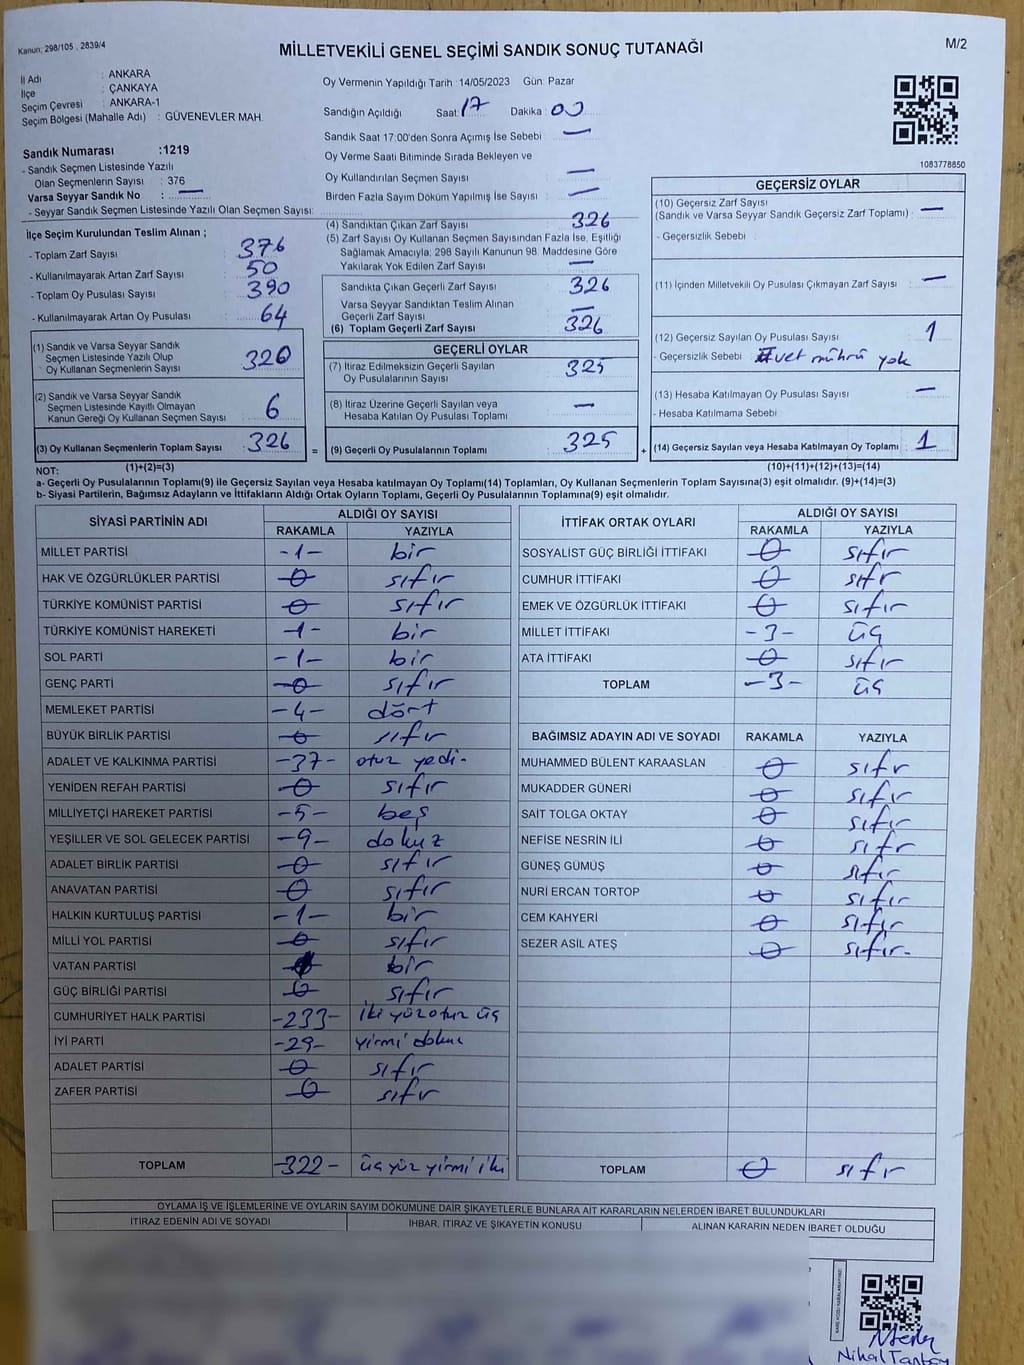 Kanun; 298/105 , 2839/4
MİLLETVEKİLİ GENEL SEÇİMİ SANDIK SONUÇ TUTANAĞI
M/2
İl Adı : ANKARA
İlçe : ÇANKAYA
Seçim Çevresi : ANKARA-1
Seçim Bölgesi (Mahalle Adı) : GÜVENEVLER MAH.
Oy Vermenin Yapıldığı Tarih : 14/05/2023 Gün: Pazar
Sandığın Açıldığı Saat: 17 Dakika 00
Sandık Saat 17:00'den Sonra Açımış İse Sebebi : —
Oy Verme Saati Bitiminde Sırada Bekleyen ve
Oy Kullandırılan Seçmen Sayısı : —
Birden Fazla Sayım Döküm Yapılmış İse Sayısı : —
1083778850
Sandık Numarası :1219
- Sandık Seçmen Listesinde Yazılı
Olan Seçmenlerin Sayısı : 376
Varsa Seyyar Sandık No : —
- Seyyar Sandık Seçmen Listesinde Yazılı Olan Seçmen Sayısı:
İlçe Seçim Kurulundan Teslim Alınan ;
- Toplam Zarf Sayısı : 376
- Kullanılmayarak Artan Zarf Sayısı : 50
- Toplam Oy Pusulası Sayısı : 390
- Kullanılmayarak Artan Oy Pusulası : 64
(1) Sandık ve Varsa Seyyar Sandık
Seçmen Listesinde Yazılı Olup
Oy Kullanan Seçmenlerin Sayısı : 320
(2) Sandık ve Varsa Seyyar Sandık
Seçmen Listesinde Kayıtlı Olmayan
Kanun Gereği Oy Kullanan Seçmen Sayısı : 6
(3) Oy Kullanan Seçmenlerin Toplam Sayısı : 326
(4) Sandıktan Çıkan Zarf Sayısı : 326
(5) Zarf Sayısı Oy Kullanan Seçmen Sayısından Fazla İse, Eşitliği
Sağlamak Amacıyla; 298 Sayılı Kanunun 98. Maddesine Göre
Yakılarak Yok Edilen Zarf Sayısı : —
Sandıkta Çıkan Geçerli Zarf Sayısı : 326
Varsa Seyyar Sandıktan Teslim Alınan
Geçerli Zarf Sayısı : —
(6) Toplam Geçerli Zarf Sayısı : 326
GEÇERLİ OYLAR
(7) İtiraz Edilmeksizin Geçerli Sayılan
Oy Pusulalarının Sayısı : 325
(8) İtiraz Üzerine Geçerli Sayılan veya
Hesaba Katılan Oy Pusulası Toplamı : —
= (9) Geçerli Oy Pusulalarının Toplamı : 325
GEÇERSİZ OYLAR
(10) Geçersiz Zarf Sayısı
(Sandık ve Varsa Seyyar Sandık Geçersiz Zarf Toplamı) : —
- Geçersizlik Sebebi :
(11) İçinden Milletvekili Oy Pusulası Çıkmayan Zarf Sayısı : —
(12) Geçersiz Sayılan Oy Pusulası Sayısı : 1
- Geçersizlik Sebebi : Evet mührü yok
(13) Hesaba Katılmayan Oy Pusulası Sayısı : —
- Hesaba Katılmama Sebebi :
+ (14) Geçersiz Sayılan veya Hesaba Katılmayan Oy Toplamı : 1
NOT: (1)+(2)=(3) (10)+(11)+(12)+(13)=(14)
a- Geçerli Oy Pusulalarının Toplamı(9) ile Geçersiz Sayılan veya Hesaba katılmayan Oy Toplamı(14) Toplamları, Oy Kullanan Seçmenlerin Toplam Sayısına(3) eşit olmalıdır. (9)+(14)=(3)
b- Siyasi Partilerin, Bağımsız Adayların ve İttifakların Aldığı Ortak Oyların Toplamı, Geçerli Oy Pusulalarının Toplamına(9) eşit olmalıdır.
SİYASİ PARTİNİN ADI ALDIĞI OY SAYISI
RAKAMLA YAZIYLA
MİLLET PARTİSİ -1- bir
HAK VE ÖZGÜRLÜKLER PARTİSİ 0 sıfır
TÜRKİYE KOMÜNİST PARTİSİ 0 sıfır
TÜRKİYE KOMÜNİST HAREKETİ -1- bir
SOL PARTİ -1- bir
GENÇ PARTİ 0 sıfır
MEMLEKET PARTİSİ -4- dört
BÜYÜK BİRLİK PARTİSİ 0 sıfır
ADALET VE KALKINMA PARTİSİ -37- otuz yedi-
YENİDEN REFAH PARTİSİ 0 sıfır
MİLLİYETÇİ HAREKET PARTİSİ -5- beş
YEŞİLLER VE SOL GELECEK PARTİSİ -9- dokuz
ADALET BİRLİK PARTİSİ 0 sıfır
ANAVATAN PARTİSİ 0 sıfır
HALKIN KURTULUŞ PARTİSİ -1- bir
MİLLİ YOL PARTİSİ 0 sıfır
VATAN PARTİSİ bir
GÜÇ BİRLİĞİ PARTİSİ 0 sıfır
CUMHURİYET HALK PARTİSİ -233- iki yüz otuz üç
İYİ PARTİ -29- yirmi dokuz
ADALET PARTİSİ 0 sıfır
ZAFER PARTİSİ 0 sıfır
TOPLAM -322- üç yüz yirmi iki
İTTİFAK ORTAK OYLARI ALDIĞI OY SAYISI
RAKAMLA YAZIYLA
SOSYALİST GÜÇ BİRLİĞİ İTTİFAKI 0 sıfır
CUMHUR İTTİFAKI 0 sıfır
EMEK VE ÖZGÜRLÜK İTTİFAKI 0 sıfır
MİLLET İTTİFAKI -3- üç
ATA İTTİFAKI 0 sıfır
TOPLAM -3- üç
BAĞIMSIZ ADAYIN ADI VE SOYADI RAKAMLA YAZIYLA
MUHAMMED BÜLENT KARAASLAN 0 sıfır
MUKADDER GÜNERİ 0 sıfır
SAİT TOLGA OKTAY 0 sıfır
NEFİSE NESRİN İLİ 0 sıfır
GÜNEŞ GÜMÜŞ 0 sıfır
NURİ ERCAN TORTOP 0 sıfır
CEM KAHYERİ 0 sıfır
SEZER ASİL ATEŞ 0 sıfır-
TOPLAM 0 sıfır
OYLAMA İŞ VE İŞLEMLERİNE VE OYLARIN SAYIM DÖKÜMÜNE DAİR ŞİKAYETLERLE BUNLARA AİT KARARLARIN NELERDEN İBARET BULUNDUKLARI
İTİRAZ EDENİN ADI VE SOYADI İHBAR, İTİRAZ VE ŞİKAYETİN KONUSU ALINAN KARARIN NEDEN İBARET OLDUĞU